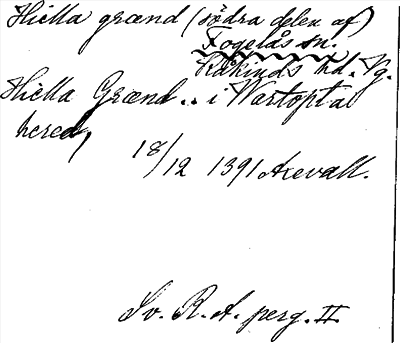 Hiella grænd (södra delen af)
Fogelås sn.
Kåkinds hd. Vg.
Hiella Grænd .. i Wartopta
hered,
18/12 1391 Axevall.
Sv. R. A. perg. II.